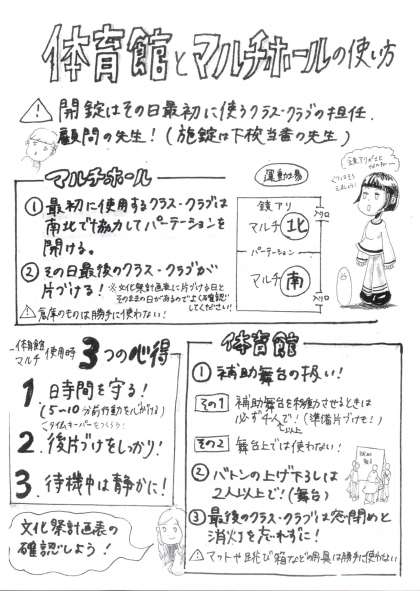 体育館とマルチホールの使い方
開錠はその日最初に使うクラス・クラブの担任、
顧問の先生!(施錠は下校当番の先生)
マルチホール
①最初に使用するクラス・クラブは
南北で協力してパーテーションを
開ける。
②その日最後のクラス・クラブが
片づける!
※文化祭計画表に片づける日と
そのままの日があるのでよく確認
してください!
倉庫のものは勝手に使わない!
運動場
鏡アリ
マルチ北
入り口
パーテーション
マルチ南
入り口
体育館
マルチ
使用時
3つの心得
1.日時間を守る!
(5~10分前行動を心がける)
タイムキーパーをつくろう!
2.後片づけをしっかり!
3.待機中は静かに!
文化祭計画表の
確認しよう!
体育館
①補助舞台の扱い!
その1
補助舞台を移動させるときは
必ず4人で!(準備片づけも!)
以上
その2
舞台上では使わない!
②バトンの上げ下ろしは
2人以上で!(舞台)
③最後のクラス・クラブは窓閉めと
消灯を忘れずに!
マットや跳び箱などの用具は勝手に使わない